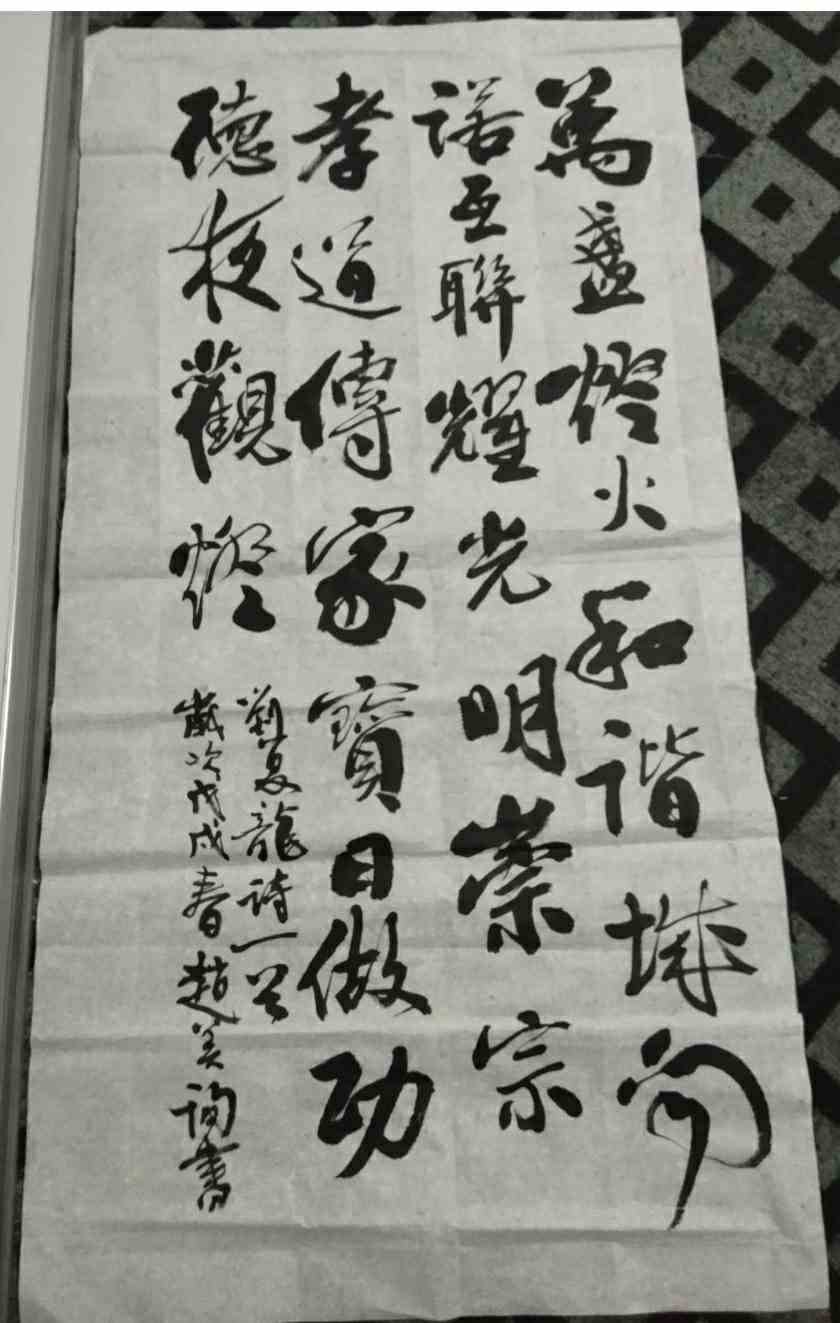 萬盞燈火和諧城守
諾互聯耀光明崇宗
孝道傳家寶日做功
德夜觀燈
劉龍詩一首
歲次戊戌春趙美詢書